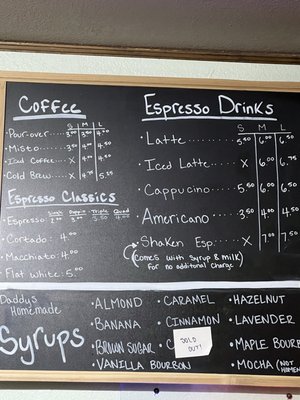 Coffee
S M L
Pour-over..... 3.00 3.50 4.00
Misto......... 3.50 4.00 4.50
Iced Coffee..... X 4.00 4.50
Cold Brew..... X 4.75 5.25
Espresso Classics
Single Double Triple Quad
Espresso: 2.00 3.00 3.50 4.00
Cortado: 4.00
Macchiato: 4.00
Flat White: 5.00
Espresso Drinks
S M L
• Latte.......... 5.50 6.00 6.50
• Iced Latte..... X 6.00 6.75
• Cappucino..... 5.50 6.00 6.50
• Americano.... 3.50 4.00 4.50
• Shaken Esp.... X 7.00 7.50
(Comes with Syrup & milk)
for no additonal charge
Daddys
Homemade
Syrups
• ALMOND
• BANANA
• BROWN SUGAR
• VANILLA BOURBON
• CARAMEL
• CINNAMON
• C
SOLD
OUT!
• HAZELNUT
• LAVENDER
• MAPLE BOURB
• MOCHA (NOT HOMEM